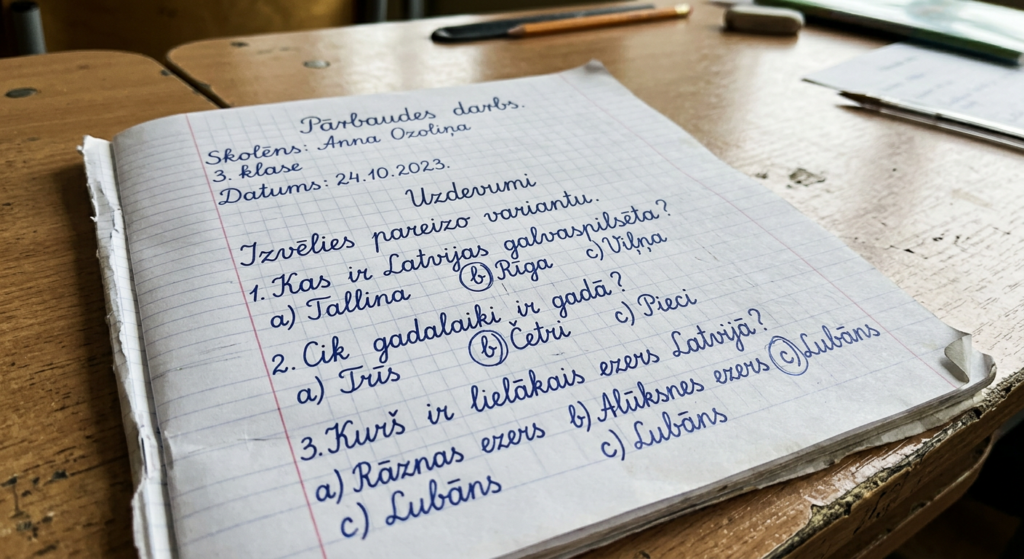 Pārbaudes darbs.
Skolēns: Anna Ozoliņa
3. klase
Datums: 24.10.2023.
Uzdevumi
Izvēlies pareizo variantu.
1. Kas ir Latvijas galvaspilsēta?
a) Tallina b) Rīga c) Viļņa
2. Cik gadalaiki ir gadā?
a) Trīs b) Četri c) Pieci
3. Kurš ir lielākais ezers Latvijā?
a) Rāznas ezers b) Alūksnes ezers c) Lubāns
c) Lubāns c) Lubāns